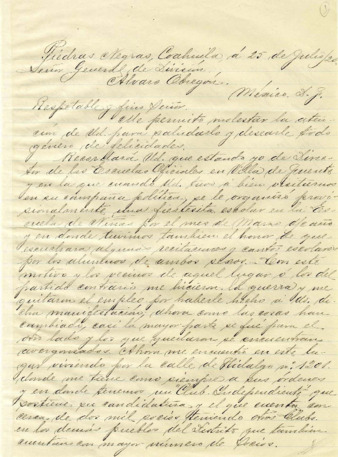 Piedras Negras, Coahuila á 25 de Julio
Señor General de División
Alvaro Obregón.
México D. F.
Respetable y fino Señor.
Me permito molestar la aten-
cion de Ud. para saludarlo y desearle todo
género de felicidades.
Recordará Ud. que estando yo de Direc-
tor de las Escuelas Oficiales en Villa de Fuente
y en la que cuando Ud. tuvo á bien visitarnos
en su campaña política, se le organizó provi-
sionalmente una fiestecita escolar en la Es-
cuela de Niñas por el mes de Marzo
en donde tuvimos tambien el honor de que
escuchara algunas recitaciones y cantos escolares
por los alumnos de ambos sexos. Con este
motivo y los vecinos de aquel lugar, á los del
partido contrario me hicieron la guerra y me
quitaron el empleo por haberle hecho á Ud. di-
cha manifestación; ahora como las cosas han
cambiado, casi la mayor parte se fué para el
otro lado y los que quedaron se encuentran
desorganizados. Ahora me encuentro en este lu-
gar viviendo por la calle de Hidalgo nº 1201.
donde me tiene como siempre a sus órdenes
y en donde tenemos un "Club Independiente" que
sostiene su candidatura y el que cuenta con
cerca de dos mil socios, teniendo otros Clubs
en los demás pueblos del Distrito que tambien
cuentan con mayor número de socios.